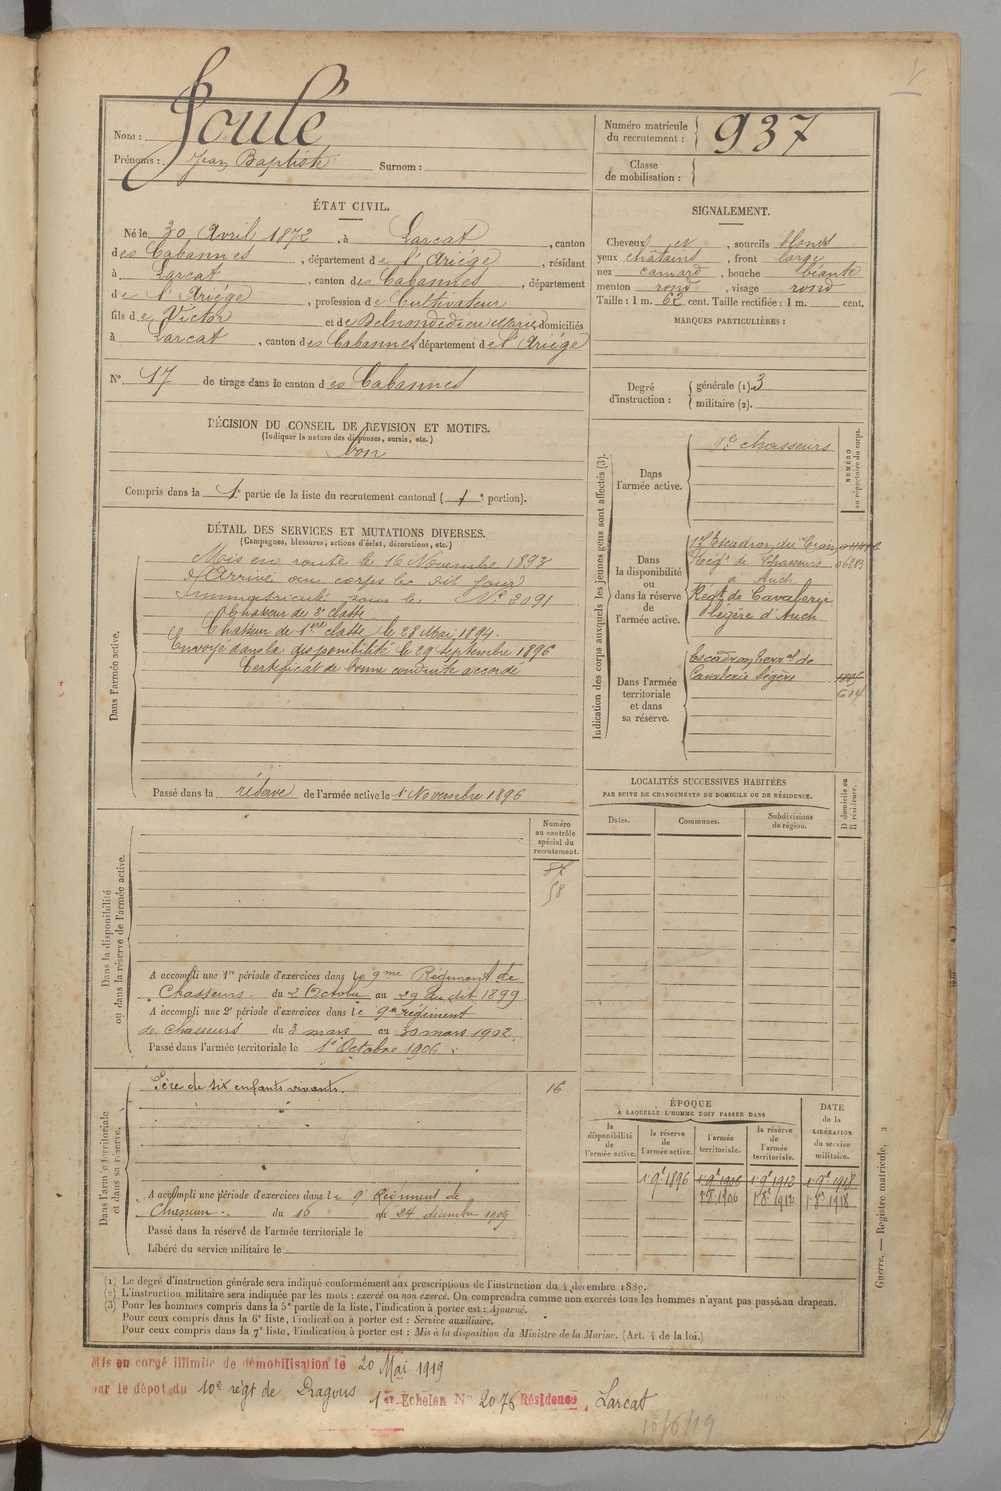 Nom : Joulé
Prénoms : Jean Baptiste Surnom :
Numéro matricule du recrutement : 937
Classe de mobilisation :
ÉTAT CIVIL.
Né le 30 Avril 1872, à Larcat, canton
des Cabannes, département de l'Ariége, résidant
à Larcat, canton des Cabannes, département
de l'Ariége, profession de Cultivateur
fils de Victor et de Marie, domiciliés
à Larcat, canton des Cabannes, département de l'Ariége
N° 17 de tirage dans le canton des Cabannes
SIGNALEMENT.
Cheveux et, sourcils blonds
yeux châtains, front large
nez camard, bouche béante
menton rond, visage rond
Taille : 1 m. 62 cent. Taille rectifiée : 1 m. cent.
MARQUES PARTICULIÈRES :
Degré d'instruction : générale (1). 3
militaire (2).
DÉCISION DU CONSEIL DE REVISION ET MOTIFS.
(Indiquer la nature des dispenses, sursis, etc.)
bon
Compris dans la 1e partie de la liste du recrutement cantonal ( 1e portion).
DÉTAIL DES SERVICES ET MUTATIONS DIVERSES.
(Campagnes, blessures, actions d'éclat, décorations, etc.)
Dans l'armée active.
Mis en route le 16 Novembre 1893
Arrivé au corps le dit jour
Immatriculé sous le N° 2091
Chasseur de 2e classe
Chasseur de 1ère classe le 28 Mai 1894.
Envoyé dans la disponibilité le 29 septembre 1896
Certificat de bonne conduite accordé
Passé dans la réserve de l'armée active le 1 Novembre 1896
Indication des corps auxquels les jeunes gens sont affectés (3).
NUMÉRO au répertoire du corps.
Dans l'armée active.
9e chasseurs
Dans la disponibilité ou dans la réserve de l'armée active.
17 Escadron du Train
Régt de Chasseurs
à Auch
Regt de Cavalerie
légère d'Auch
Dans l'armée territoriale et dans sa réserve.
Escadron terral de
Cavalerie légère
LOCALITÉS SUCCESSIVES HABITÉES
PAR SUITE DE CHANGEMENTS DE DOMICILE OU DE RÉSIDENCE.
D domicile ou R résidence.
Dates. Communes. Subdivisions de région.
Dans la disponibilité ou dans la réserve de l'armée active.
Numéro au contrôle spécial du recrutement.
87
58
A accompli une 1re période d'exercices dans le 9me Régiment de
Chasseurs. du 2 Octobre au 29 du dit 1899
A accompli une 2e période d'exercices dans le 9e régiment
de chasseurs du 3 mars au 30 mars 1902.
Passé dans l'armée territoriale le 1e Octobre 1906
Dans l'armée territoriale et dans sa réserve.
Père de six enfants vivants.
16
A accompli une période d'exercices dans le 9e Régiment de
Chasseurs du 16 au 24 décembre 1909
Passé dans la réserve de l'armée territoriale le
Libéré du service militaire le
ÉPOQUE
À LAQUELLE L'HOMME DOIT PASSER DANS
la disponibilité de l'armée active. la réserve de l'armée active. l'armée territoriale. la réserve de l'armée territoriale.
DATE de la LIBÉRATION du service militaire.
1 9e 1896 1 9e 1906 1 9e 1912 1 9e 1918
1 8e 1906 1 8e 1912 1 8e 1918
(1) Le degré d'instruction générale sera indiqué conformément aux prescriptions de l'instruction du 4 décembre 1889.
(2) L'instruction militaire sera indiquée par les mots : exercé ou non exercé. On comprendra comme non exercés tous les hommes n'ayant pas passé au drapeau.
(3) Pour les hommes compris dans la 5e partie de la liste, l'indication à porter est : Ajourné.
Pour ceux compris dans la 6e liste, l'indication à porter est : Service auxiliaire.
Pour ceux compris dans la 7e liste, l'indication à porter est : Mis à la disposition du Ministre de la Marine. (Art. 4 de la loi.)
Guerre. — Registre matricule. 2
Mis en congé illimité de démobilisation le 20 Mai 1919
par le dépot du 10e régt de Dragons 1er Echelon N° 2076 Résidence Larcat
10/6/19